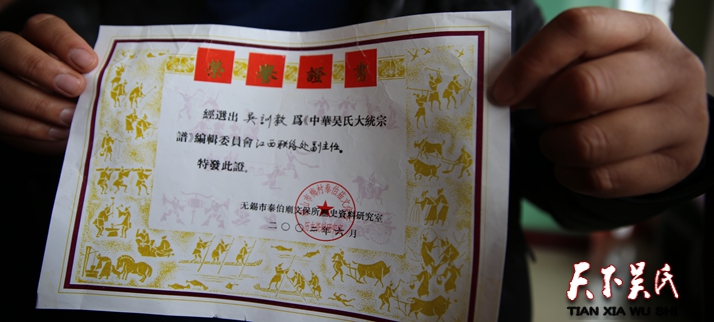 榮譽證書
經選出 吴训教 為《中華吴氏大統宗
譜》編輯委員會江西联络处副主任。
特發此證。
无錫市泰伯廟文保所歷史資料研究室
二〇〇二年六月
天下吴氏
TIAN XIA WU SHI